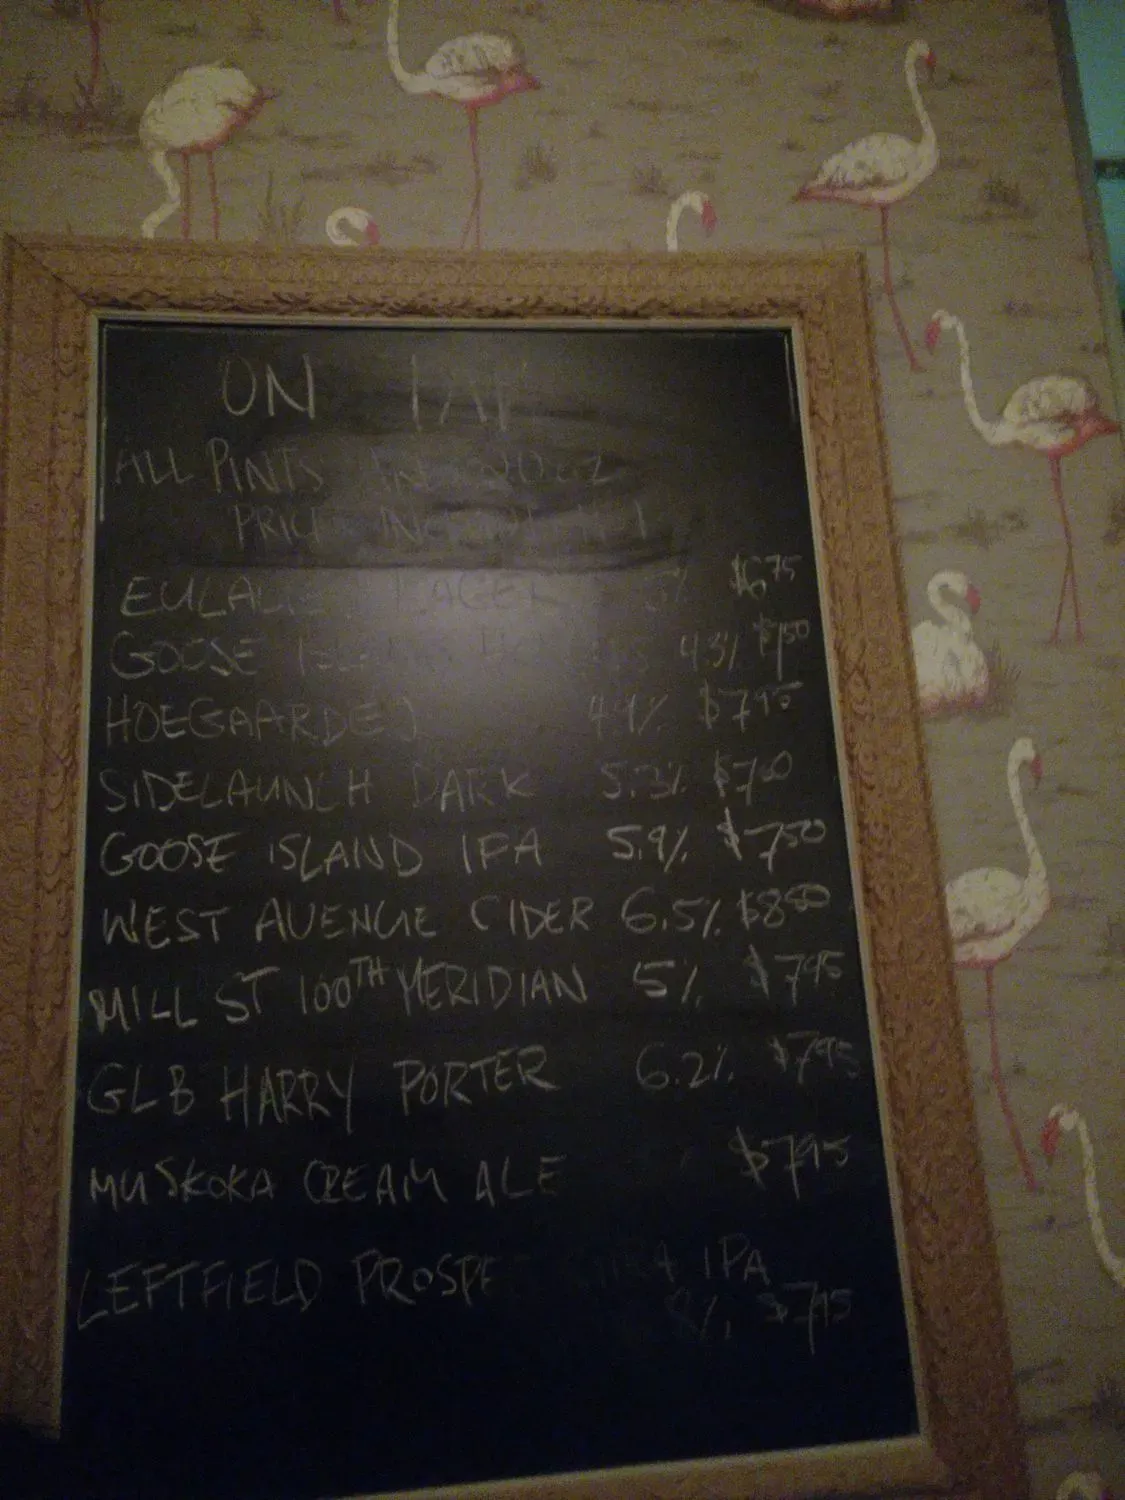 ON TAP
ALL PINTS 20oz
EULALIE LAGER 5% $6.75
GOOSE 4.3% $7.50
HOEGAARDEN 4.9% $7.95
SIDELAUNCH DARK 5.3% $7.50
GOOSE ISLAND IPA 5.9% $7.50
WEST AVENUE CIDER 6.5% $8.00
MILL ST 100TH MERIDIAN 5% $7.95
GLB HARRY PORTER 6.2% $7.95
MUSKOKA CREAM ALE $7.95
LEFTFIELD IPA
$7.95